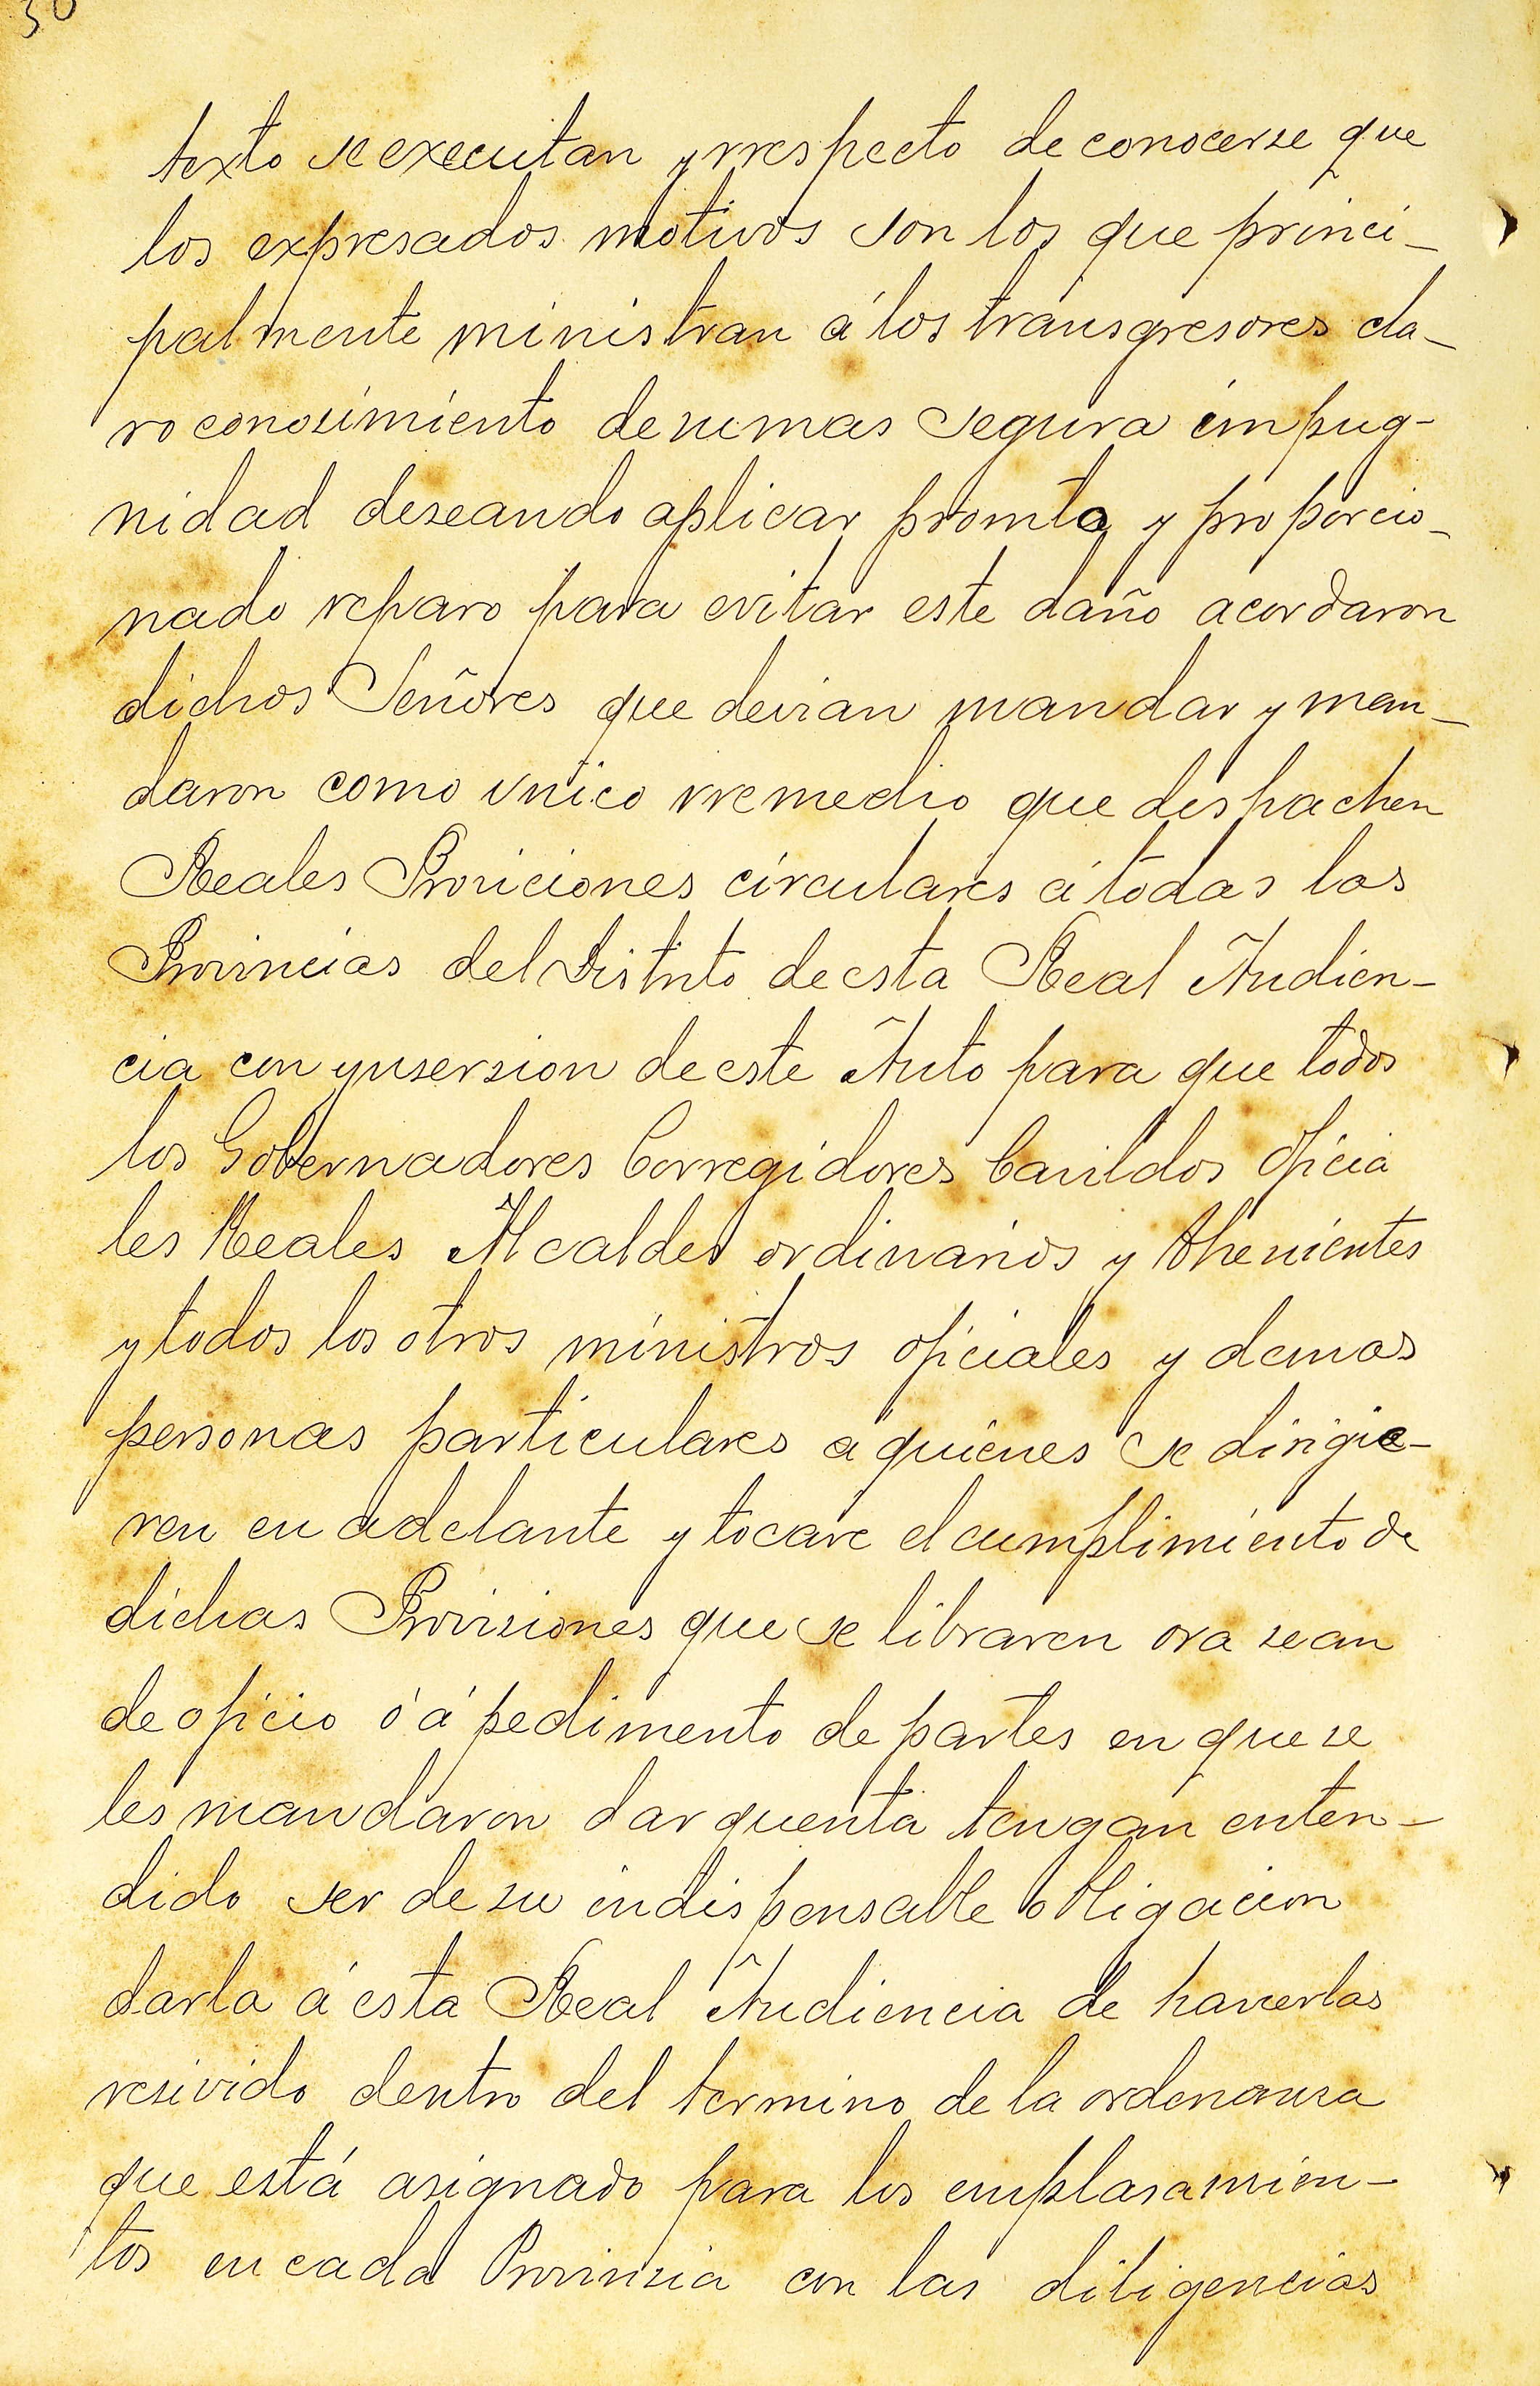 30
texto se executan yrrespecto de conocerse que
los expresados motivos son los que princi-
palmente ministran á los transgresores cla-
ro conosimiento de su mas segura impug-
nidad deseando aplicar promto y proporcio-
nado reparo para evitar este daño acordaron
dichos Señores que devian mandar y man-
daron como vnico rremedio que despachen
Reales Proviciones circulares á todas las
Provincias del Distrito de esta Real Audien-
cia con ynsersion de este Auto para que todos
los Gobernadores Corregidores Cavildos oficia
les Reales Alcaldes ordinarios y thenientes
y todos los otros ministros oficiales y demas
personas particulares á quienes se dirigie-
ren en adelante y tocare el cumplimiento de
dichas Provisiones que se libraren ora sean
de oficio ó á pedimento de partes en que se
les mandaron dar quenta tengan enten-
dido ser de su indispensable obligacion
darla á esta Real Audiencia de haverlas
resivido dentro del termino de la ordenansa
que está asignado para los emplasamien-
tos en cada Provinsia con las diligencias